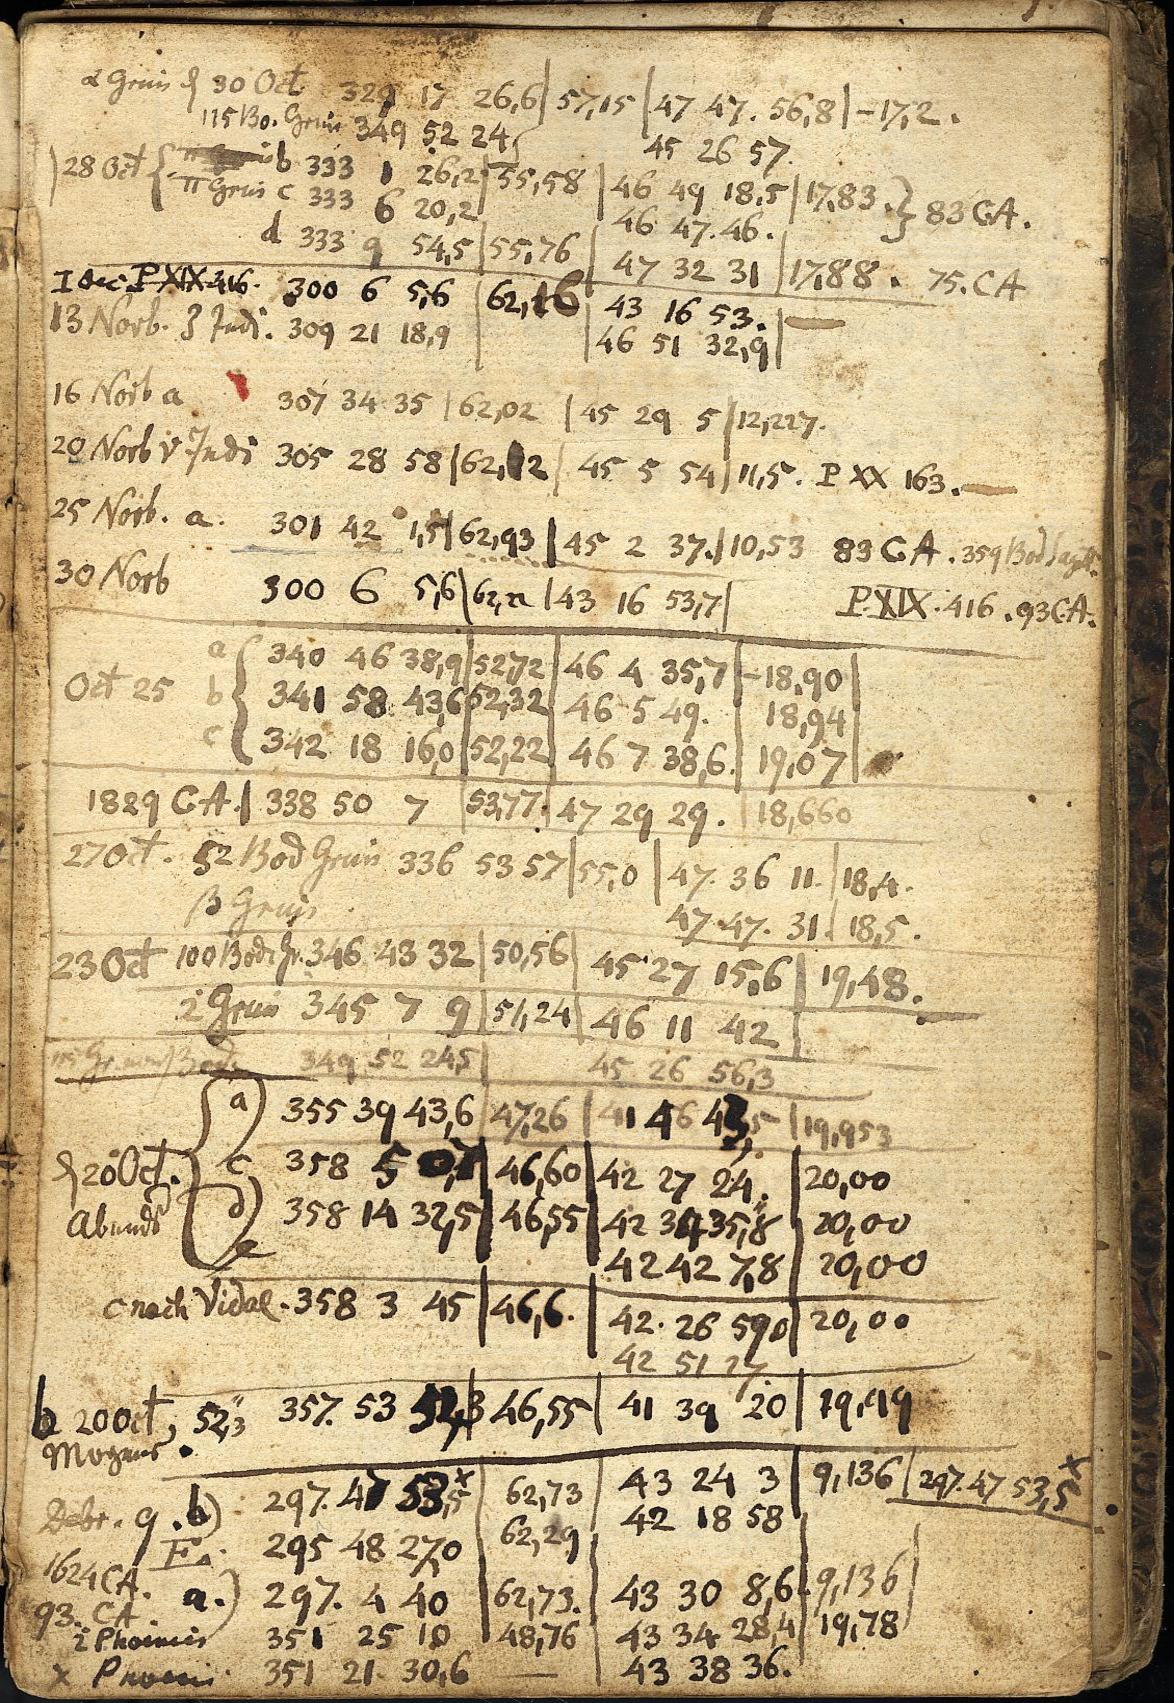 α Gruis 30 Oct 329 17 26,6 | 57,15 | 47 47. 56,8 | -17,2.
115 Bo. Gruis 349 52 24, 45 26 57.
28 Oct { b 333 1 26,2 | 55,58 | 46 49 18,5 | 17,83. } 83 CA.
π Gruis c 333 6 20,2 46 47. 46.
d 333 9 54,5 | 55,76 | 47 32 31 | 17,88. 75. CA
P XIX 416. 300 6 5,6 | 62, 43 16 53. —
13 Novb. Indi. 309 21 18,9 | 46 51 32,9 |
16 Novb a 307 34 35 | 62,02 | 45 29 5 | 12,227.
20 Novb ν Indi 305 28 58 | 62, 2 | 45 5 54 | 11,5. P XX 163. —
25 Novb. a. 301 42 1,5 | 62,93 | 45 2 37. | 10,53 83 CA. 359 Bod
30 Novb 300 6 5,6 | 62, | 43 16 53,7 | P. XIX. 416. 93 CA.
a { 340 46 38,9 | 52,72 | 46 4 35,7 | -18,90 |
Oct 25 b { 341 58 43,6 | 52,32 | 46 5 49. | 18,94 |
c { 342 18 16,0 | 52,22 | 46 7 38,6. | 19,07 |
1829 CA. | 338 50 7 | 53,77. | 47 29 29. | 18,660
27 Oct. 52 Bod Gruis 336 53 57 | 55,0 | 47. 36 11. | 18,4.
β Gruis 47 47. 31. | 18,5.
23 Oct 100 Bode Gr. 346 43 32 | 50,56 | 45 27 15,6 | 19,48.
i Gruis 345 7 9 | 51,24 | 46 11 42 |
115 Bode 349 52 24,5 | 45 26 56,3
a) 355 39 43,6 | 47,26 | 41 46 43,5 | 19,953
20 Oct. c 358 5 | 46,60 | 42 27 24. | 20,00
Abends d) 358 14 32,5 | 46,55 | 42 34 35,8 | 20,00
e 42 42 7,8 | 20,00
c nach Vidal. 358 3 45 | 46,6. | 42. 26 59,0 | 20,00
42 51 27
b 20 Oct, 52,3 357. 53 52,3 | 46,55 | 41 39 20 | 19,99
Morgens.
Debr. 9. b) 297. 47 53,5 x | 62,73 | 43 24 3 | 9,136 | 297. 47 53,5 x
42 18 58
E. 295 48 27,0 | 62,29
1624 CA. a.) 297. 4 40 | 62,73. | 43 30 8,6. | 9,136
93. CA.
i Phoenis 351 25 18 | 48,76 | 43 34 28,4 | 19,78
x 351 21. 30,6 — 43 38 36.